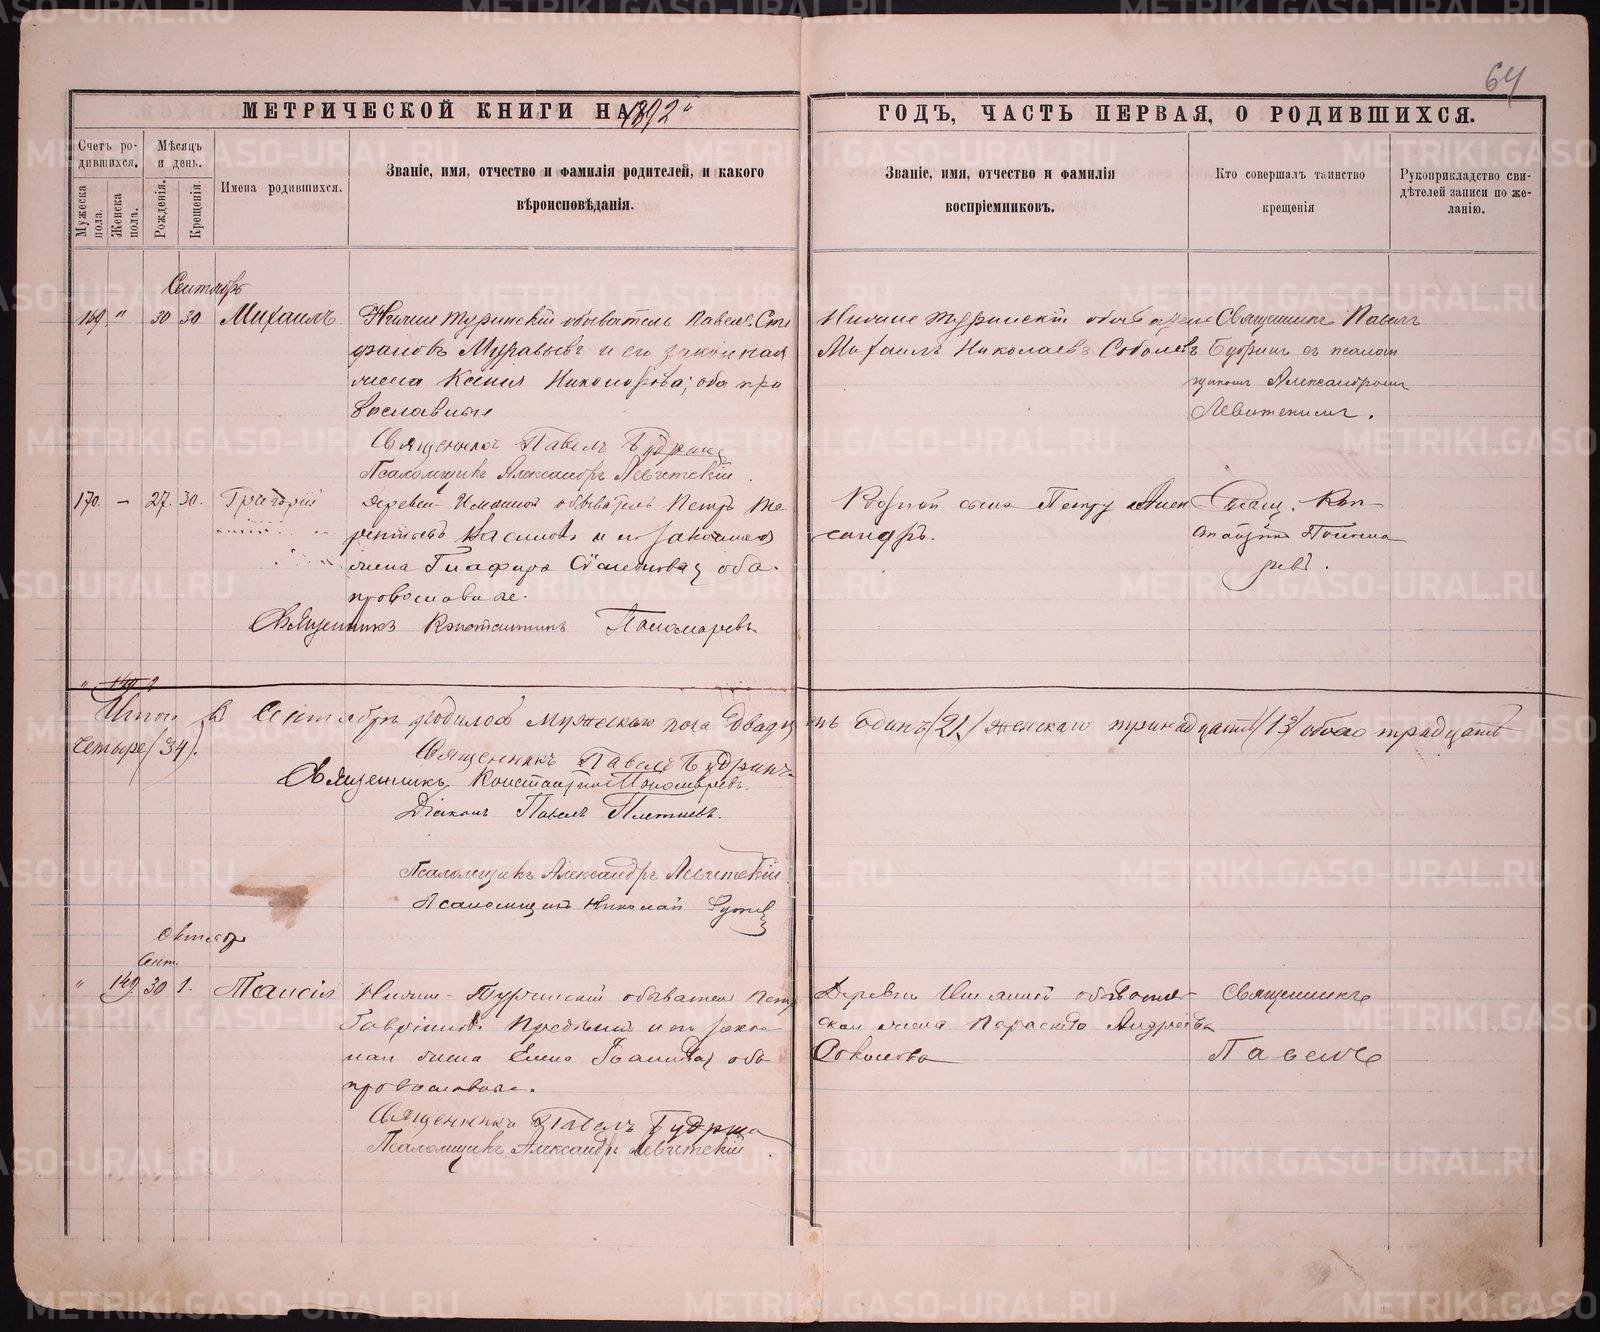 64
МЕТРИЧЕСКОЙ КНИГИ НА 1892
ГОДЪ, ЧАСТЬ ПЕРВАЯ, О РОДИВШИХСЯ.
Счетъ родившихся.
Мужеска пола.
Женска пола.
Мѣсяцъ и день.
Рожденія.
Крещенія.
Имена родившихся.
Званіе, имя, отчество и фамилія родителей, и какого
вѣроисповѣданія.
Званіе, имя, отчество и фамилія
воспріемниковъ.
Кто совершалъ таинство
крещенія
Рукоприкладство сви-
дѣтелей записи по же-
ланію.
Сентябрь
169 " 30 30 Михаилъ
Нижне Туринскій обыватель Павелъ Сте
фановъ Муравьевъ и его законная
жена Ксенія Никифорова; оба пра
вославные
Священникъ Павелъ Будринъ
Псаломщикъ Александръ Левитскій.
Нижне Туринскій
Михаилъ Николаевъ Соболевъ
Священникъ Павелъ
Будринъ съ псалом
щикомъ Александромъ
Левитскимъ.
170. - 27. 30. Григорій
обыватель Петръ
и его законная
жена Глафира оба
православные.
Священникъ Константинъ Пономаревъ
Родной сынъ Петра Алек
сандръ.
Свящ. Кон-
стантинъ Понома
ревъ.
" 149
Итого въ Сентябрѣ родилось мужскаго пола двадцать одинъ (21) женскаго тринадцать (13) обоего тридцать
четыре (34).
Священникъ Павелъ Будринъ
Священникъ Константинъ Пономаревъ.
Діаконъ Павелъ Плетневъ.
Псаломщикъ Александръ Левитскій
Псаломщикъ Николай
Октябрь
Сент.
" 149. 30 1. Таисія
Нижне-Туринскій обыватель Петръ
и его закон
ная жена Елена оба
православные.
Священникъ Павелъ Будринъ
Псаломщикъ Александръ Левитскій.
Деревни обыватель
ская жена Параскева Андреева
Соколова
Священникъ
Павелъ
METRIKI.GASO-URAL.RU